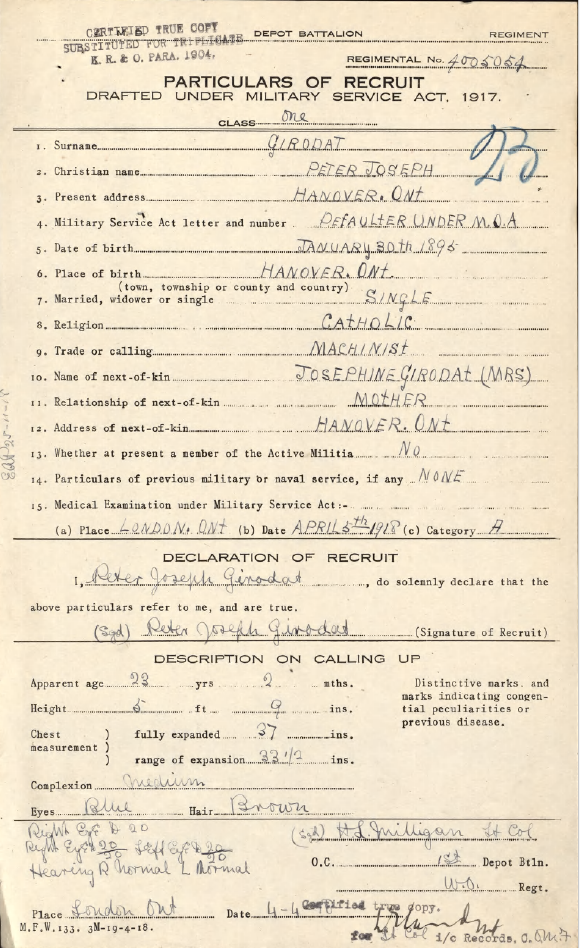 CERTIFIED TRUE COPY
SUBSTITUTED FOR TRIPLICATE
K. R. & O. PARA. 1904.
DEPOT BATTALION REGIMENT
REGIMENTAL No. 4005054
PARTICULARS OF RECRUIT
DRAFTED UNDER MILITARY SERVICE ACT, 1917.
CLASS one
23
1. Surname GIRODAT
2. Christian name PETER JOSEPH
3. Present address HANOVER. Ont
4. Military Service Act letter and number DEFAULTER UNDER M.O.A
5. Date of birth JANUARY 30th 1895
6. Place of birth HANOVER. Ont.
(town, township or county and country)
7. Married, widower or single SINGLE
8. Religion CATHOLIC
9. Trade or calling MACHINIST
10. Name of next-of-kin JOSEPHINE GIRODAT (MRS)
11. Relationship of next-of-kin MOTHER
12. Address of next-of-kin HANOVER. Ont
13. Whether at present a member of the Active Militia No
14. Particulars of previous military or naval service, if any NONE
15. Medical Examination under Military Service Act:-
(a) Place LONDON. ONT (b) Date APRIL 5th 1918 (c) Category A
DECLARATION OF RECRUIT
I, Peter Joseph Girodat, do solemnly declare that the
above particulars refer to me, and are true.
(Sgd) Peter Joseph Girodat (Signature of Recruit)
DESCRIPTION ON CALLING UP
Apparent age 23 yrs 2 mths.
Height 5 ft 9 ins.
Chest measurement ) fully expanded 37 ins.
) range of expansion 33 1/2 ins.
Distinctive marks. and
marks indicating congen-
tial peculiarities or
previous disease.
Complexion Medium
Eyes Blue Hair Brown
Right Eye D 20
Right Eye 20/20 Left Eye D 20/20
Hearing R Normal L Normal
(Sgd) H L Milligan Lt Col
O.C. 1st Depot Btln.
W.O. Regt.
Place London Ont Date 4-4-
Certified true copy.
for Lt Col i/c Records, O.
M.F.W.133. 3M-19-4-18.